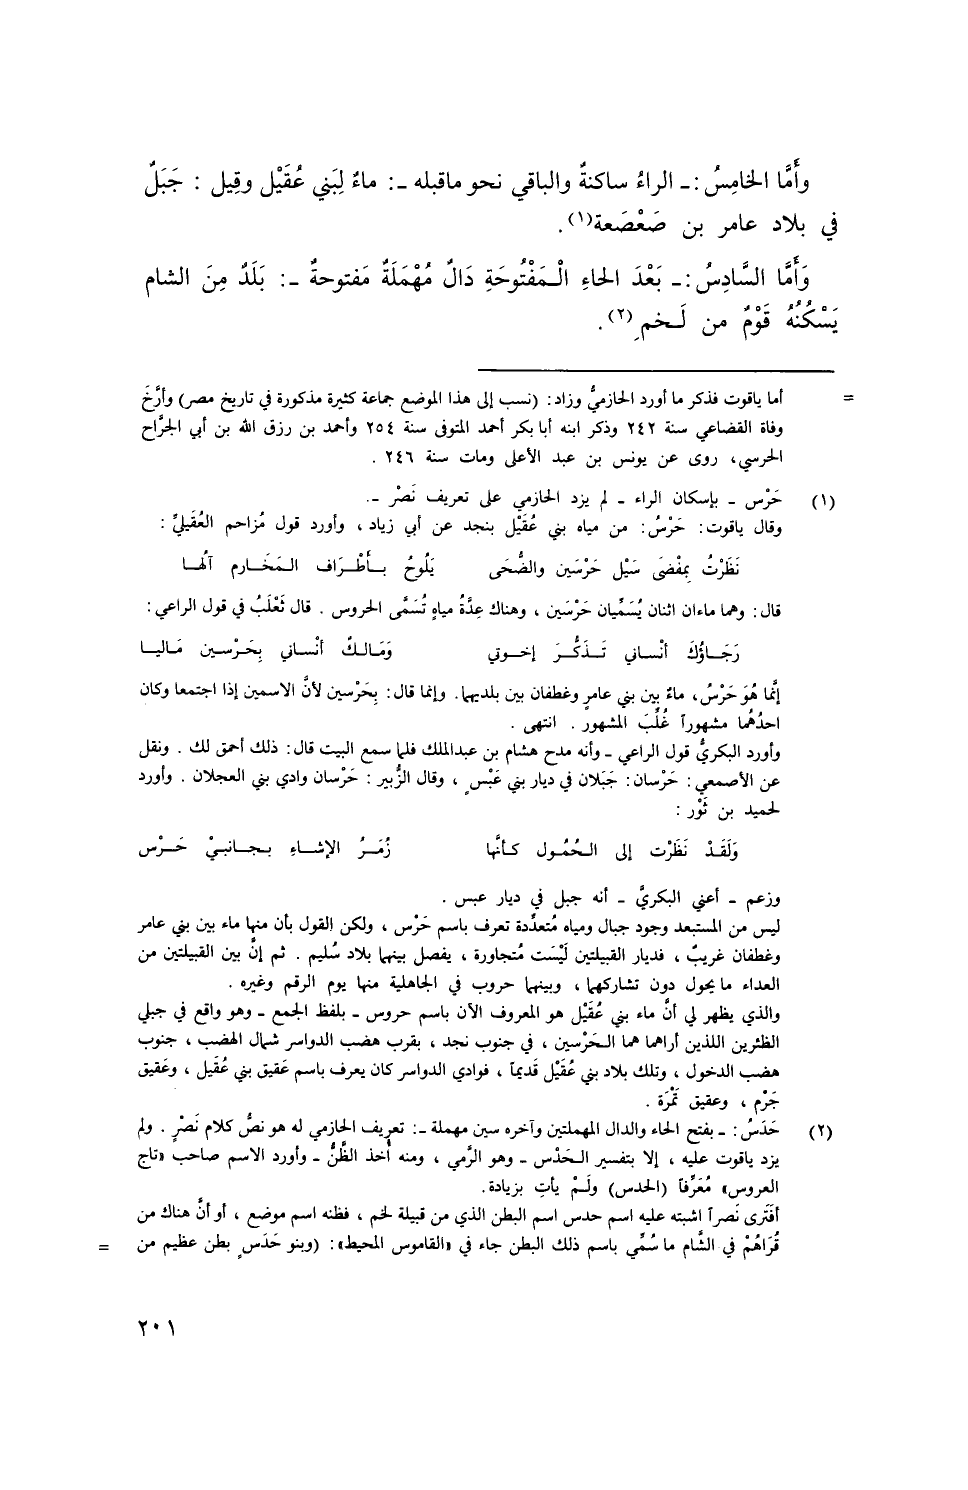 وأَمَّا الخامِسُ :ـ الراءُ ساكنةٌ والباقي نحو ماقبله ـ: ماءٌ لِبَني عُقَيْل وقِيل : جَبَلٌ
في بلاد عامر بن صَعْصَعة(١).
وَأَمَّا السَّادِسُ :ـ بَعْدَ الحاءِ الْـمَفْتُوحَةِ دَالٌ مُهْمَلَةٌ مَفتوحةٌ ـ: بَلَدٌ مِنَ الشام
يَسْكُنُهُ قَوْمٌ من لَـخمٍ(٢).
= أما ياقوت فذكر ما أورد الحازميُّ وزاد: (نسب إلى هذا الموضع جماعة كثيرة مذكورة في تاريخ مصر) وأرَّخَ
وفاة القضاعي سنة ٢٤٢ وذكر ابنه أبا بكر أحمد المتوفى سنة ٢٥٤ وأحمد بن رزق الله بن أبي الجرَّاح
الحرسي، روى عن يونس بن عبد الأعلى ومات سنة ٢٤٦ .
(١) حَرْس ـ بإسكان الراء ـ لم يزد الحازمي على تعريف نَصْر ـ.
وقال ياقوت: حَرْسُ: من مياه بني عُقَيْل بنجد عن أبي زياد ، وأورد قول مُزاحم العُقَيليِّ :
نَظَرْتُ بِمفْضَى سَيْل حَرْسَين والضُّحَى يَلُوحُ بـأَطْـرَاف الـمَخَـارم آلُهـا
قال: وهما ماءان اثنان يُسَمَّيان حَرْسَين ، وهناك عِدَّةُ مياهٍ تُسَمَّى الحروس . قال ثَعْلَبُ في قول الراعي :
رَجَـاؤُكَ أنْساني تَـذَكُّـرَ إخـوتي وَمَـالـكُ أنْساني بِحَـرْسـين مَـاليـا
إنَّما هُوَ حَرْسُ، ماءٌ بين بني عامرٍ وغطفان بين بلديهما. وإنما قال: بِحَرْسين لأنَّ الاسمين إذا اجتمعا وكان
احدُهُما مشهوراً غُلِّبَ المشهور . انتهى .
وأورد البكريُّ قول الراعي ـ وأنه مدح هشام بن عبدالملك فلما سمع البيت قال: ذلك أحمق لك . ونقل
عن الأصمعي: حَرْسان: جَبَلان في ديار بني عَبْسٍ ، وقال الزُّبير : حَرْسان وادي بني العجلان . وأورد
لحميد بن ثَوْر :
وَلَقَـدْ نَظَرْت إلى الـحُمُـول كـأنَّها زُمَـرُ الإشـاءِ بـجـانبـيْ حَـرْس
وزعم ـ أعني البكريَّ ـ أنه جبل في ديار عبس .
ليس من المستبعد وجود جبال ومياه مُتعدِّدة تعرف باسم حَرْس ، ولكن القول بأن منها ماء بين بني عامر
وغطفان غريبٌ ، فديار القبيلتين لَيْسَت مُتجاورة ، يفصل بينهما بلاد سُليم . ثم إنَّ بين القبيلتين من
العداء ما يحول دون تشاركهما ، وبينهما حروب في الجاهلية منها يوم الرقم وغيره .
والذي يظهر لي أنَّ ماء بني عُقَيْل هو المعروف الآن باسم حروس ـ بلفظ الجمع ـ وهو واقع في جبلي
الظئرين اللذين أراهما هما الـحَرْسين ، في جنوب نجد ، بقرب هضب الدواسر شمال الهضب ، جنوب
هضب الدخول ، وتلك بلاد بني عُقَيْل قَديماً ، فوادي الدواسر كان يعرف باسم عَقيق بني عُقَيل ، وعَقيق
جَرْم ، وعقيق تَمْرَة .
(٢) حَدَسُ: ـ بفتح الحاء والدال المهملتين وآخره سين مهملة ـ: تعريف الحازمي له هو نصُّ كلام نَصْرٍ . ولم
يزد ياقوت عليه ، إلا بتفسير الـحَدْس ـ وهو الرَّمي ، ومنه أُخذ الظَّنُّ ـ وأورد الاسم صاحب «تاج
العروس» مُعَرَّفاً (الحدس) ولَـمْ يأتِ بزيادة.
أفَتَرى نَصراً اشبته عليه اسم حدس اسم البطن الذي من قبيلة لخم ، فظنه اسم موضع ، أو أنَّ هناك من
قُرَاهُمْ في الشَّام ما سُمِّي باسم ذلك البطن جاء في «القاموس المحيط»: (وبنو حَدَسٍ بطن عظيم من =
٢٠١